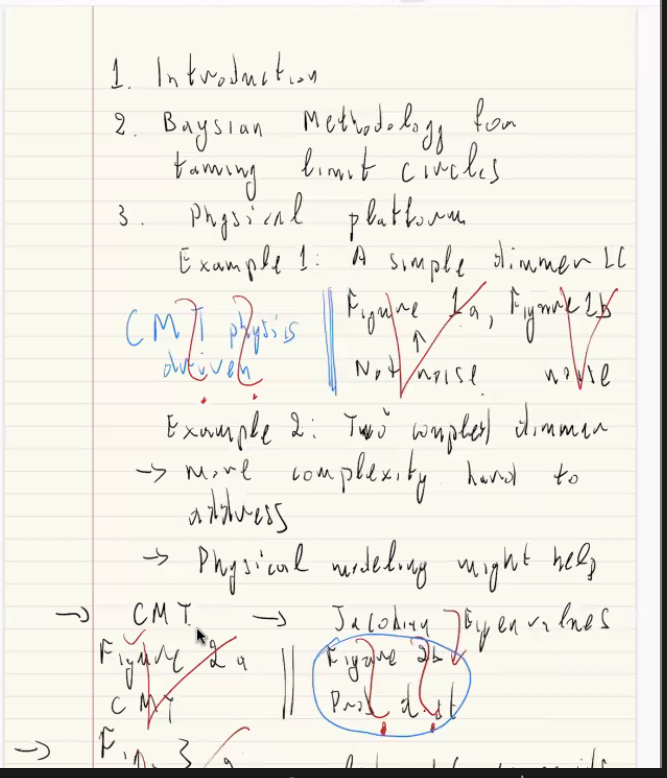 1. Introduction
2. Baysian Methodology for
taming limit circles
3. Physical platform
Example 1: A simple dimmer LC
CMT physis
driven
Figure 1a, Figure 1b
Not noise noise
Example 2: Two coupled dimmer
→ more complexity hard to
address
→ Physical modeling might help
→ CMT → Jacobian Eigenvalues
Figure 2a
CMT
Figure 2b
Prob dist
→ Fig. 3